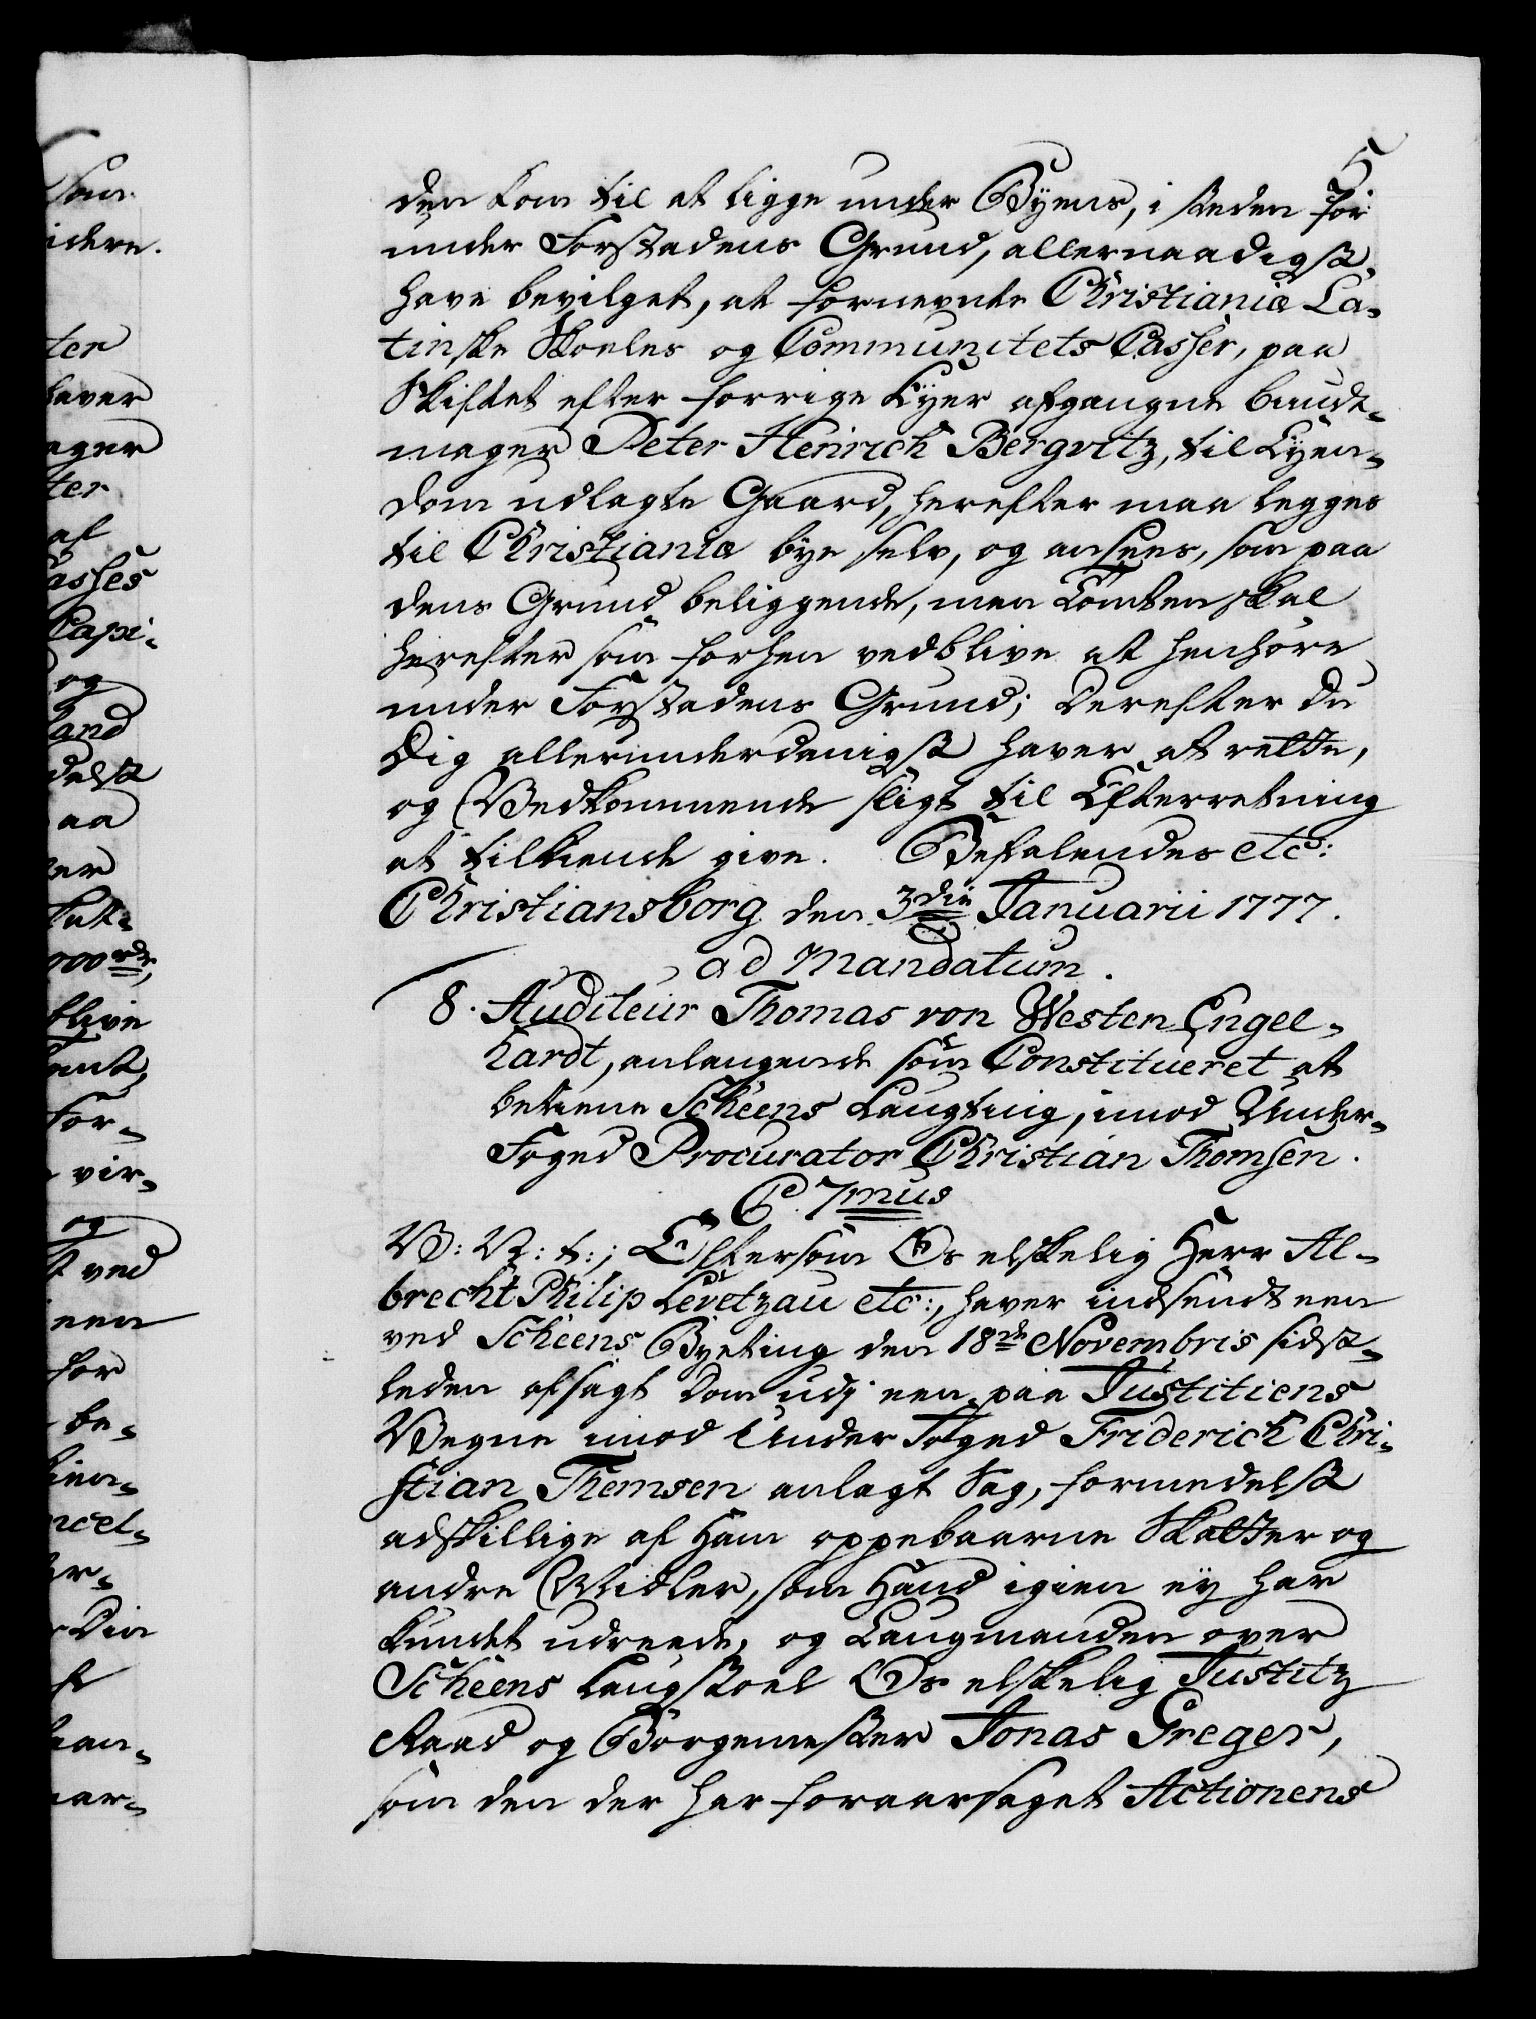 5
den kom til at ligge under Byens, i steden for
under Forstadens Grund, allernaadigst
have bevilget, at fornevnte Christianiæ La-
tinske Skoeles og Communitets Casser, paa
Skiftet efter forrige Eyer afgangne Bundt-
mager Peter Henrich Bergvitz, til Eyen-
dom udlagte Gaard, herefter maa legges
til Christiania bye selv, og ansees, som paa
dens Grund beliggende, men Tomten skal
herefter som forhen vedblive at henhøre
under Forstadens Grund; Derefter Du
Dig allerunderdanigst haver at rette,
og Vedkommende sligt til Efterretning
at tilkiende give. Befalendes etc:
Christiansborg den 3die Januarii 1777.
ad Mandatum.
8. Auditeur Thomas von Westen Engel-
hardt, anlangende som Constitueret at
betiene Scheens Laugting, imod Under-
Foged Procurator Christian Thomsen.
C 7mus
V: N: t:; Eftersom Os elskelig Herr Al-
brecht Philip Levetzau etc:, haver indsendt een
ved Scheens Byeting den 18de Novembris sidst-
leden afsagt Dom udj een paa Justitiens
Vegne imod Under Foged Friderich Chri-
stian Themsen anlagt Sag, formedelst
adskillige af Ham oppebaarne Skatter og
andre Midler, som Hand igien ey har
kundet udreede, og Laugmanden over
Scheens Laugstoel Os elskelig Justitz
Raad og Borgemester Jonas Greger,
som den der har foraarsaget Actionens